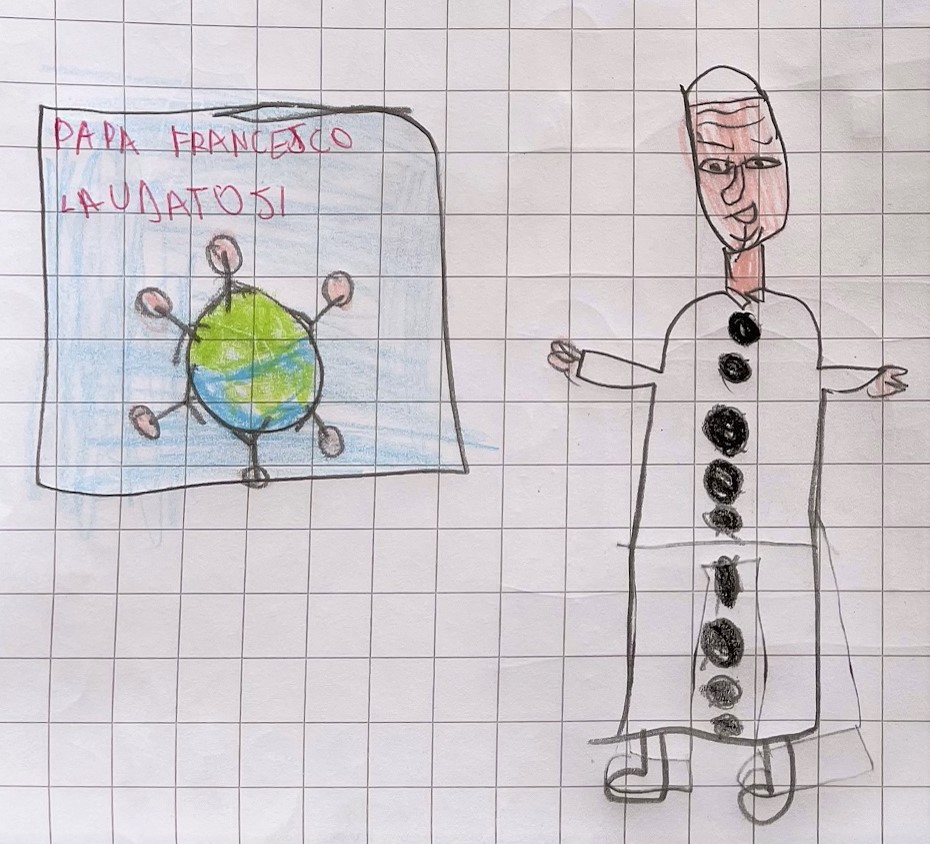 PAPA FRANCESCO
LAUDATO SI